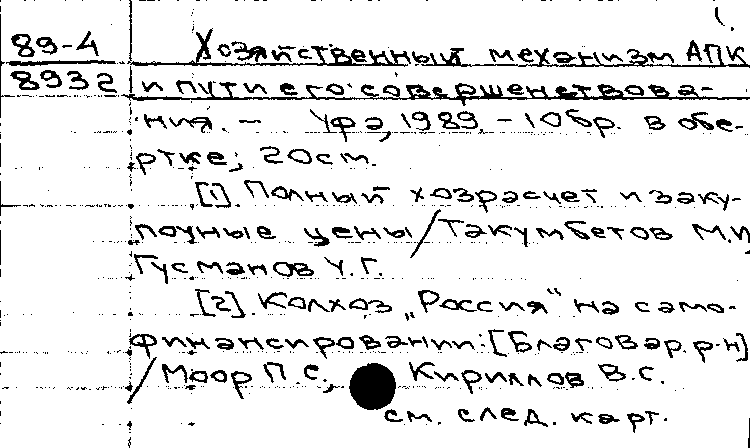 1.
89-4 Хозяйственный механизм АПК
8932 и пути его совершенствова-
ния. - Уфа, 1989. - 10бр. в обе-
ртке; 20см.
[1]. Полный хозрасчет и заку-
почные цены / Такумбетов М.И,
Гусманов У.Г.
[2]. Колхоз „Россия“ на само-
финансировании: [Благовар. р-н]
/ Моор П.С., Кириллов В.С.
см. след. карт.